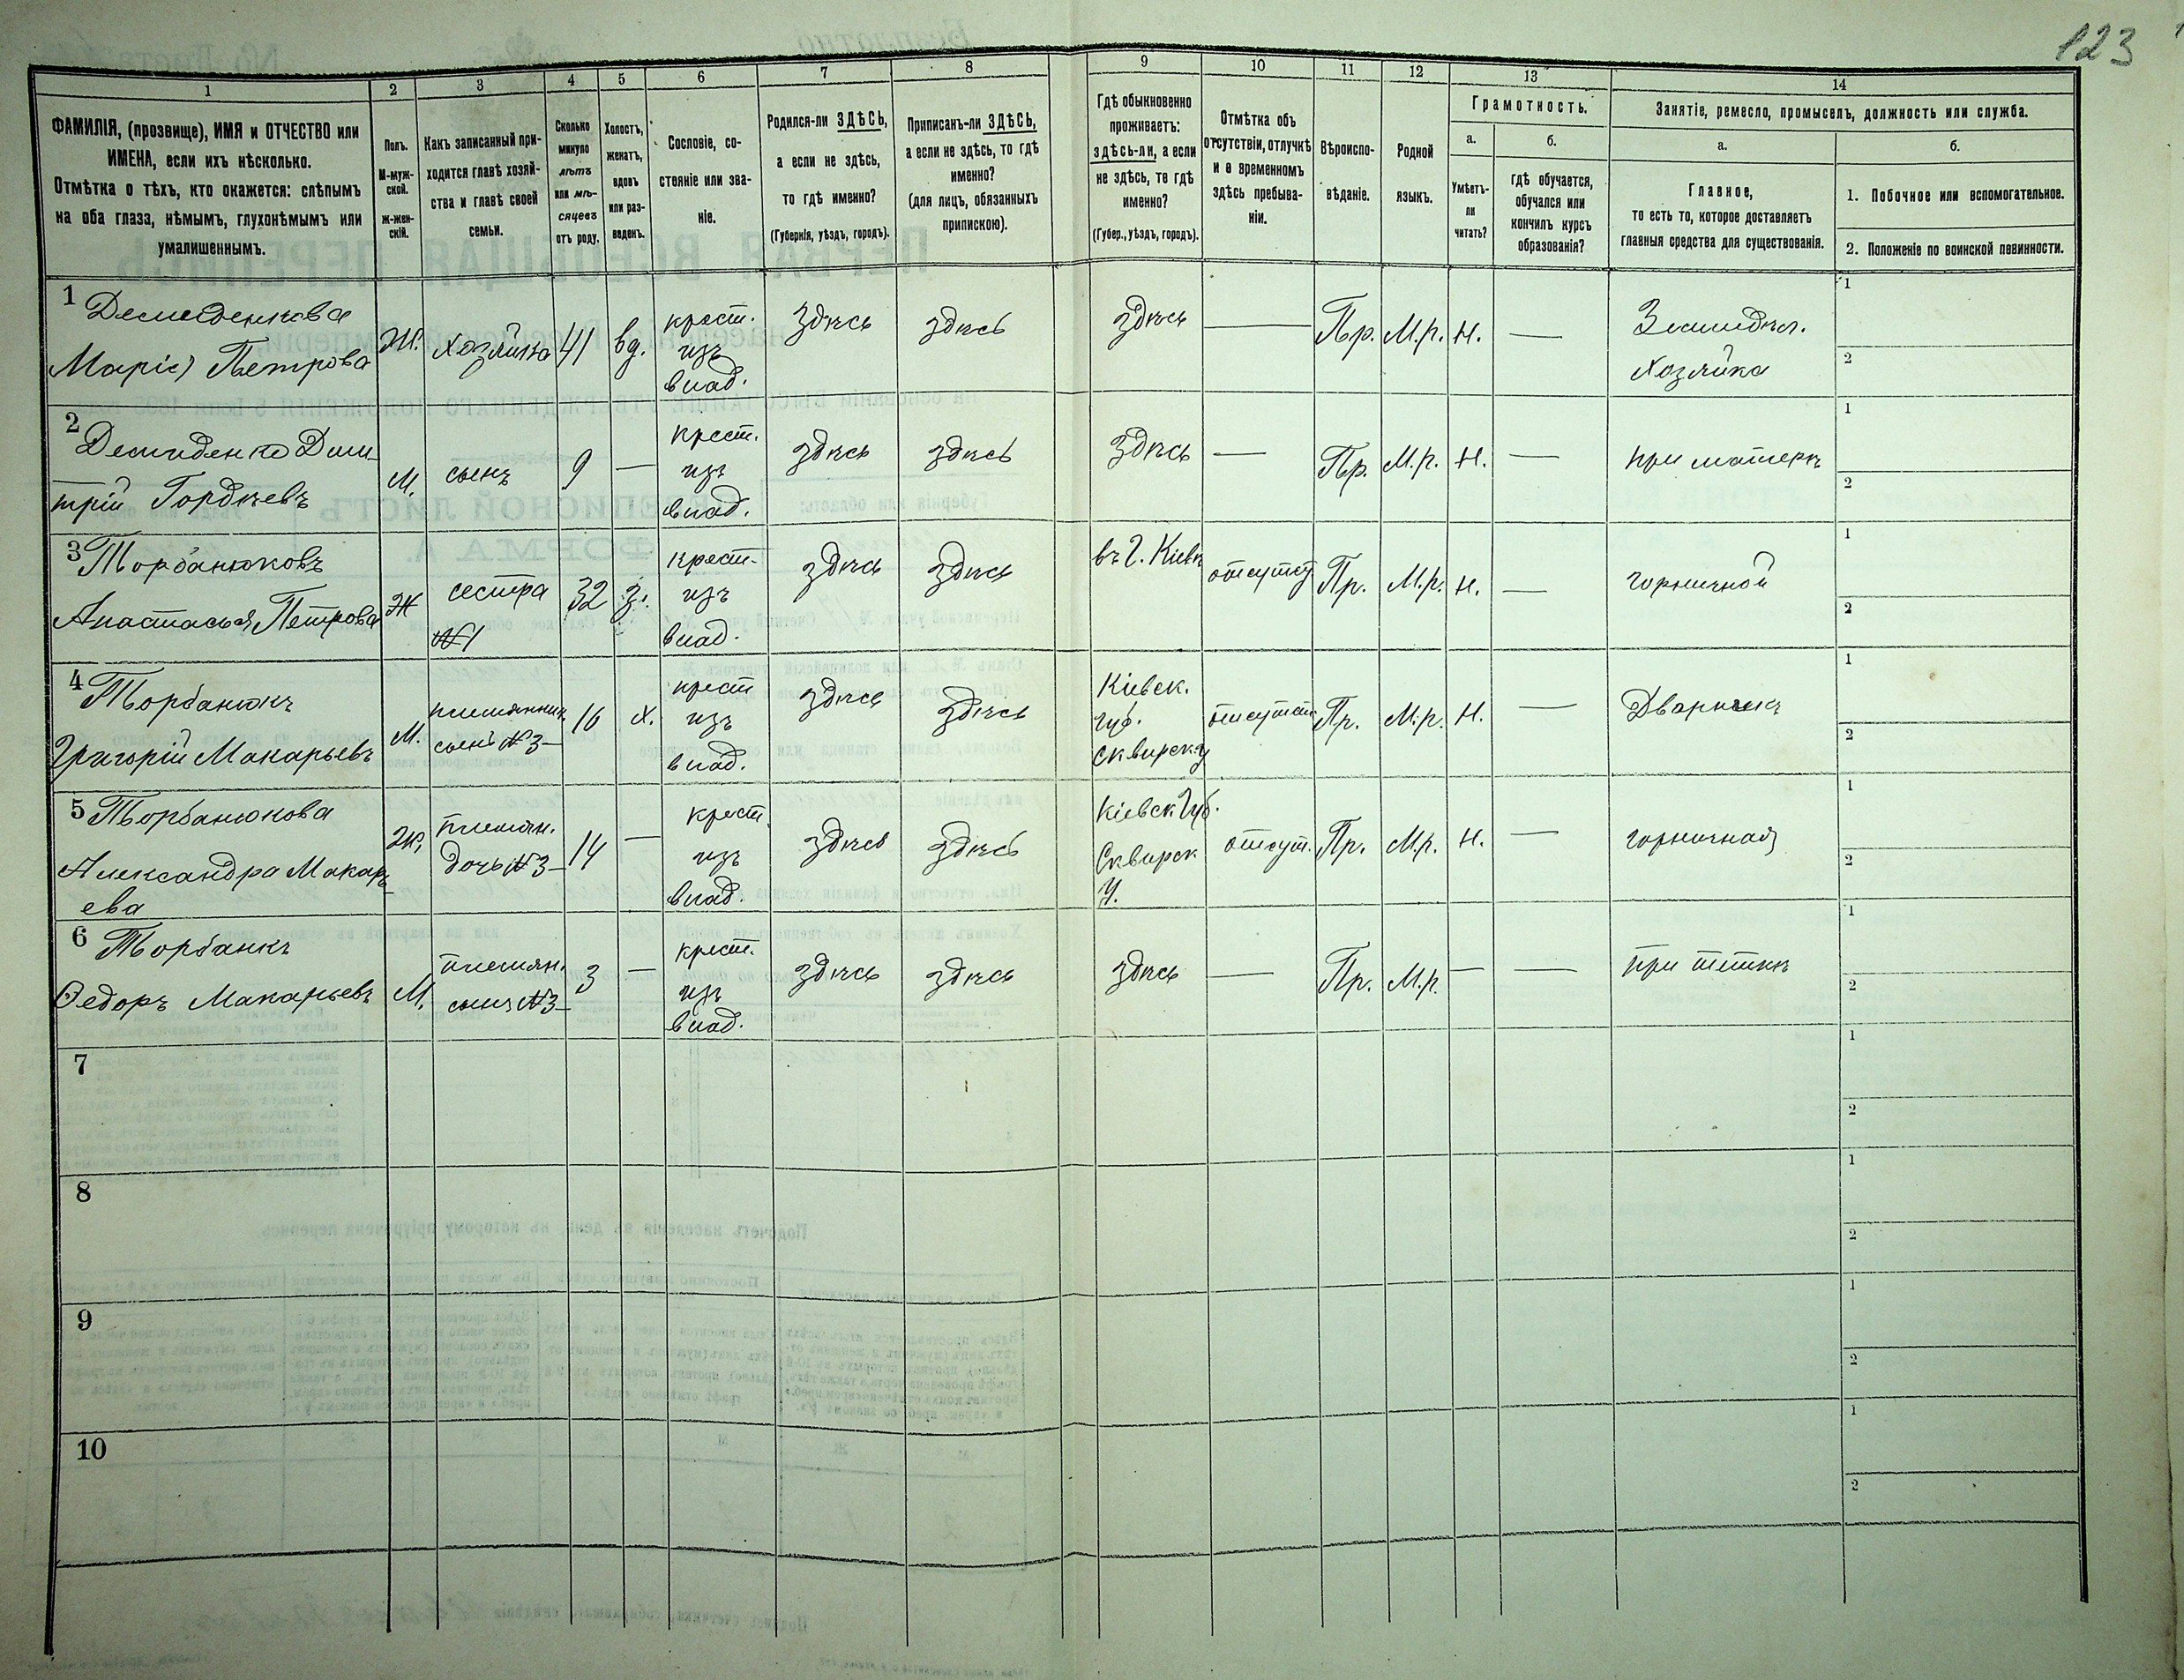 123
1 2 3 4 5 6 7 8 9 10 11 12 13 14
ФАМИЛІЯ, (прозвище), ИМЯ и ОТЧЕСТВО или
ИМЕНА, если ихъ нѣсколько.
Отмѣтка о тѣхъ, кто окажется: слѣпымъ
на оба глаза, нѣмымъ, глухонѣмымъ или
умалишеннымъ.
Полъ.
М-муж-
ской.
Ж-жен-
скій.
Какъ записанный при-
ходится главѣ хозяй-
ства и главѣ своей
семьи.
Сколько
минуло
лѣтъ
или мѣ-
сяцевъ
отъ роду.
Холостъ,
женатъ,
вдовъ
или раз-
веденъ.
Сословіе, со-
стояніе или зва-
ніе.
Родился-ли ЗДѢСЬ,
а если не здѣсь,
то гдѣ именно?
(Губернія, уѣздъ, городъ).
Приписанъ-ли ЗДѢСЬ,
а если не здѣсь, то гдѣ
именно?
(для лицъ, обязанныхъ
припискою).
Гдѣ обыкновенно
проживаетъ:
здѣсь-ли, а если
не здѣсь, то гдѣ
именно?
(Губер., уѣздъ, городъ).
Отмѣтка объ
отсутствіи, отлучкѣ
и о временномъ
здѣсь пребыва-
ніи.
Вѣроиспо-
вѣданіе.
Родной
языкъ.
Грамотность.
а.
Умѣетъ-
ли
читать?
б.
гдѣ обучается,
обучался или
кончилъ курсъ
образованія?
Занятіе, ремесло, промыселъ, должность или служба.
а.
Главное,
то есть то, которое доставляетъ
главныя средства для существованія.
б.
1. Побочное или вспомогательное.
2. Положеніе по воинской повинности.
1 Демиденкова
Марія Петрова
Ж.
хозяйка
41
вд.
крест.
изъ
влад.
здѣсь
здѣсь
здѣсь
—
Пр.
М.р.
Н.
—
Земледѣл.
Хозяйка
1
2
2 Демиденко Дми-
трій Гордѣевъ
М.
сынъ
9
—
крест.
изъ
влад.
здѣсь
здѣсь
здѣсь
—
Пр.
М.р.
Н.
—
при матерѣ
1
2
3 Торбанюковъ
Анастасья Петрова
Ж
сестра
№1
32
з.
крест.
изъ
влад.
здѣсь
здѣсь
въ Г. Кіевѣ
отсутст
Пр.
М.р.
Н.
—
горничной
1
2
4 Торбанюкъ
Григорій Макарьевъ
М.
племянник
сынъ №3—
16
х.
крест
изъ
влад.
здѣсь
здѣсь
Кіевск.
губ.
Сквирск у
отсутст
Пр.
М.р.
Н.
—
Дворникъ
1
2
5 Торбанюкова
Александра Макарь-
ева
Ж,
племян.
дочь №3—
14
—
крест.
изъ
влад.
здѣсь
здѣсь
Кіевск Губ.
Сквирск
У.
отсут.
Пр.
М.р.
Н.
—
горничная
1
2
6 Торбанкъ
Ѳедоръ Макарьевъ
М.
племян.
сынъ №3—
3
—
крест.
изъ
влад.
здѣсь
здѣсь
здѣсь
—
Пр.
М.р.
—
—
при теткѣ
1
2
7
1
2
8
1
2
9
1
2
10
1
2